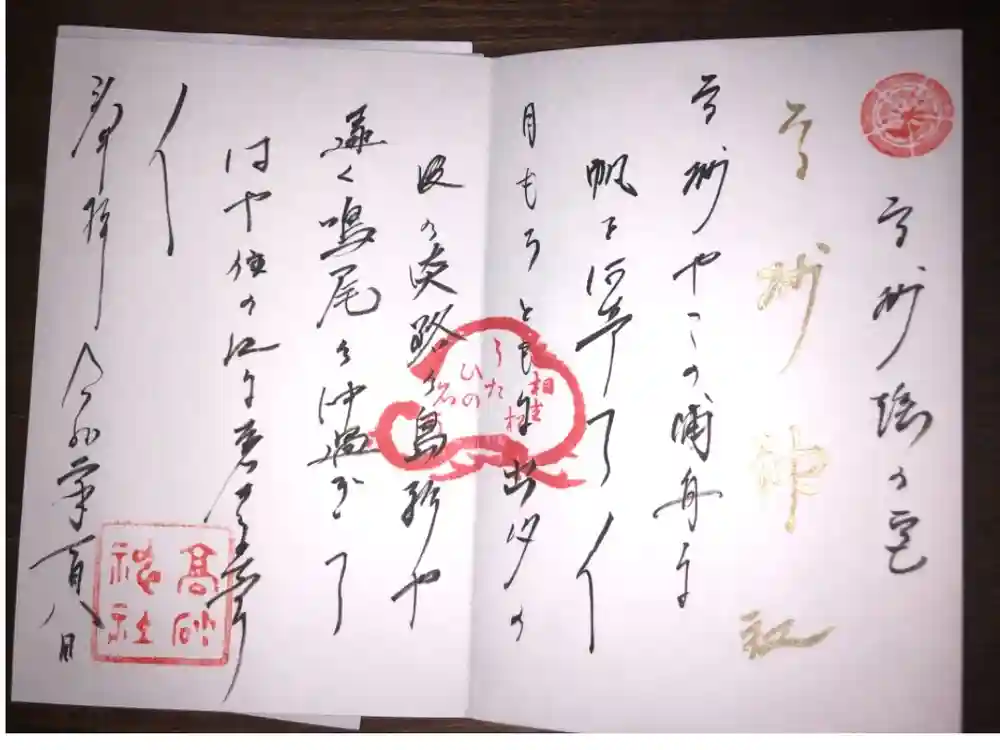 高砂謡の宮
高砂神社
高砂やこの浦舟に
帆を
〳〵
月もろともに出汐の
波の淡路の島影や
遠く鳴尾の沖過ぎて
はや住の江に着きにけり
〳〵
奉拝 令和
八日
相生
松
うた
ひの
高砂
神社